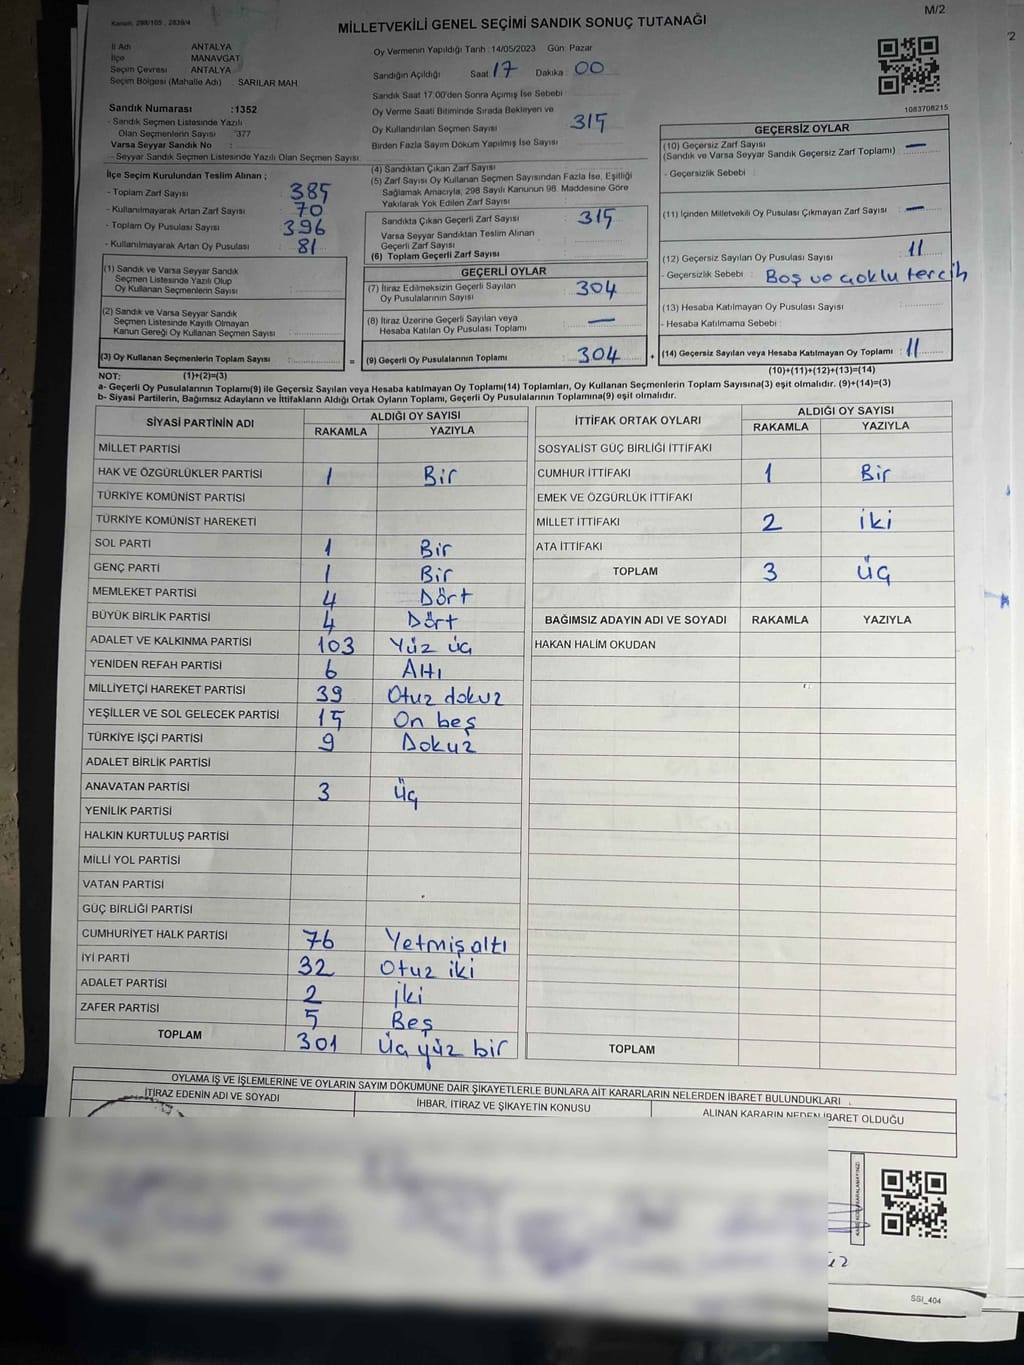 Kanun, 298/105 , 2839/4
M/2
MİLLETVEKİLİ GENEL SEÇİMİ SANDIK SONUÇ TUTANAĞI
İl Adı ANTALYA
İlçe MANAVGAT
Seçim Çevresi ANTALYA
Seçim Bölgesi (Mahalle Adı) : SARILAR MAH
Sandık Numarası :1352
- Sandık Seçmen Listesinde Yazılı
Olan Seçmenlerin Sayısı :377
Varsa Seyyar Sandık No :
- Seyyar Sandık Seçmen Listesinde Yazılı Olan Seçmen Sayısı:
Oy Vermenin Yapıldığı Tarih :14/05/2023 Gün: Pazar
Sandığın Açıldığı Saat: 17 Dakika: 00
Sandık Saat 17:00'den Sonra Açımış İse Sebebi
Oy Verme Saati Bitiminde Sırada Bekleyen ve
Oy Kullandırılan Seçmen Sayısı : 315
Birden Fazla Sayım Döküm Yapılmış İse Sayısı
1083708215
İlçe Seçim Kurulundan Teslim Alınan ;
- Toplam Zarf Sayısı : 385
- Kullanılmayarak Artan Zarf Sayısı : 70
- Toplam Oy Pusulası Sayısı : 396
- Kullanılmayarak Artan Oy Pusulası : 81
(1) Sandık ve Varsa Seyyar Sandık
Seçmen Listesinde Yazılı Olup
Oy Kullanan Seçmenlerin Sayısı :
(2) Sandık ve Varsa Seyyar Sandık
Seçmen Listesinde Kayıtlı Olmayan
Kanun Gereği Oy Kullanan Seçmen Sayısı :
(3) Oy Kullanan Seçmenlerin Toplam Sayısı :
(4) Sandıktan Çıkan Zarf Sayısı
(5) Zarf Sayısı Oy Kullanan Seçmen Sayısından Fazla İse, Eşitliği
Sağlamak Amacıyla, 298 Sayılı Kanunun 98. Maddesine Göre
Yakılarak Yok Edilen Zarf Sayısı :
Sandıkta Çıkan Geçerli Zarf Sayısı : 315
Varsa Seyyar Sandıktan Teslim Alınan
Geçerli Zarf Sayısı :
(6) Toplam Geçerli Zarf Sayısı :
GEÇERLİ OYLAR
(7) İtiraz Edilmeksizin Geçerli Sayılan
Oy Pusulalarının Sayısı : 304
(8) İtiraz Üzerine Geçerli Sayılan veya
Hesaba Katılan Oy Pusulası Toplamı : —
= (9) Geçerli Oy Pusulalarının Toplamı : 304 +
GEÇERSİZ OYLAR
(10) Geçersiz Zarf Sayısı : —
(Sandık ve Varsa Seyyar Sandık Geçersiz Zarf Toplamı)
- Geçersizlik Sebebi :
(11) İçinden Milletvekili Oy Pusulası Çıkmayan Zarf Sayısı : —
(12) Geçersiz Sayılan Oy Pusulası Sayısı : 11
- Geçersizlik Sebebi : Boş ve çoklu tercih
(13) Hesaba Katılmayan Oy Pusulası Sayısı :
- Hesaba Katılmama Sebebi :
(14) Geçersiz Sayılan veya Hesaba Katılmayan Oy Toplamı : 11
NOT: (1)+(2)=(3)
(10)+(11)+(12)+(13)=(14)
a- Geçerli Oy Pusulalarının Toplamı(9) ile Geçersiz Sayılan veya Hesaba katılmayan Oy Toplamı(14) Toplamları, Oy Kullanan Seçmenlerin Toplam Sayısına(3) eşit olmalıdır. (9)+(14)=(3)
b- Siyasi Partilerin, Bağımsız Adayların ve İttifakların Aldığı Ortak Oyların Toplamı, Geçerli Oy Pusulalarının Toplamına(9) eşit olmalıdır.
SİYASİ PARTİNİN ADI ALDIĞI OY SAYISI
RAKAMLA YAZIYLA
MİLLET PARTİSİ
HAK VE ÖZGÜRLÜKLER PARTİSİ 1 Bir
TÜRKİYE KOMÜNİST PARTİSİ
TÜRKİYE KOMÜNİST HAREKETİ
SOL PARTİ 1 Bir
GENÇ PARTİ 1 Bir
MEMLEKET PARTİSİ 4 Dört
BÜYÜK BİRLİK PARTİSİ 4 Dört
ADALET VE KALKINMA PARTİSİ 103 Yüz üç
YENİDEN REFAH PARTİSİ 6 Altı
MİLLİYETÇİ HAREKET PARTİSİ 39 Otuz dokuz
YEŞİLLER VE SOL GELECEK PARTİSİ 15 On beş
TÜRKİYE İŞÇİ PARTİSİ 9 Dokuz
ADALET BİRLİK PARTİSİ
ANAVATAN PARTİSİ 3 Üç
YENİLİK PARTİSİ
HALKIN KURTULUŞ PARTİSİ
MİLLİ YOL PARTİSİ
VATAN PARTİSİ
GÜÇ BİRLİĞİ PARTİSİ
CUMHURİYET HALK PARTİSİ 76 Yetmiş altı
İYİ PARTİ 32 Otuz iki
ADALET PARTİSİ 2 İki
ZAFER PARTİSİ 5 Beş
TOPLAM 301 Üç yüz bir
İTTİFAK ORTAK OYLARI ALDIĞI OY SAYISI
RAKAMLA YAZIYLA
SOSYALİST GÜÇ BİRLİĞİ İTTİFAKI
CUMHUR İTTİFAKI 1 Bir
EMEK VE ÖZGÜRLÜK İTTİFAKI
MİLLET İTTİFAKI 2 iki
ATA İTTİFAKI
TOPLAM 3 Üç
BAĞIMSIZ ADAYIN ADI VE SOYADI RAKAMLA YAZIYLA
HAKAN HALİM OKUDAN
TOPLAM
OYLAMA İŞ VE İŞLEMLERİNE VE OYLARIN SAYIM DÖKÜMÜNE DAİR ŞİKAYETLERLE BUNLARA AİT KARARLARIN NELERDEN İBARET BULUNDUKLARI
İTİRAZ EDENİN ADI VE SOYADI İHBAR, İTİRAZ VE ŞİKAYETİN KONUSU ALINAN KARARIN NEDEN İBARET OLDUĞU
SSI_404